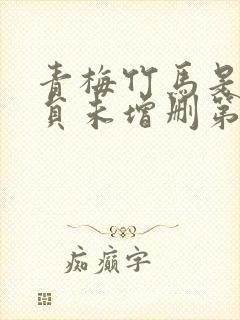 青梅竹马是
贞未增删第
痴癫字